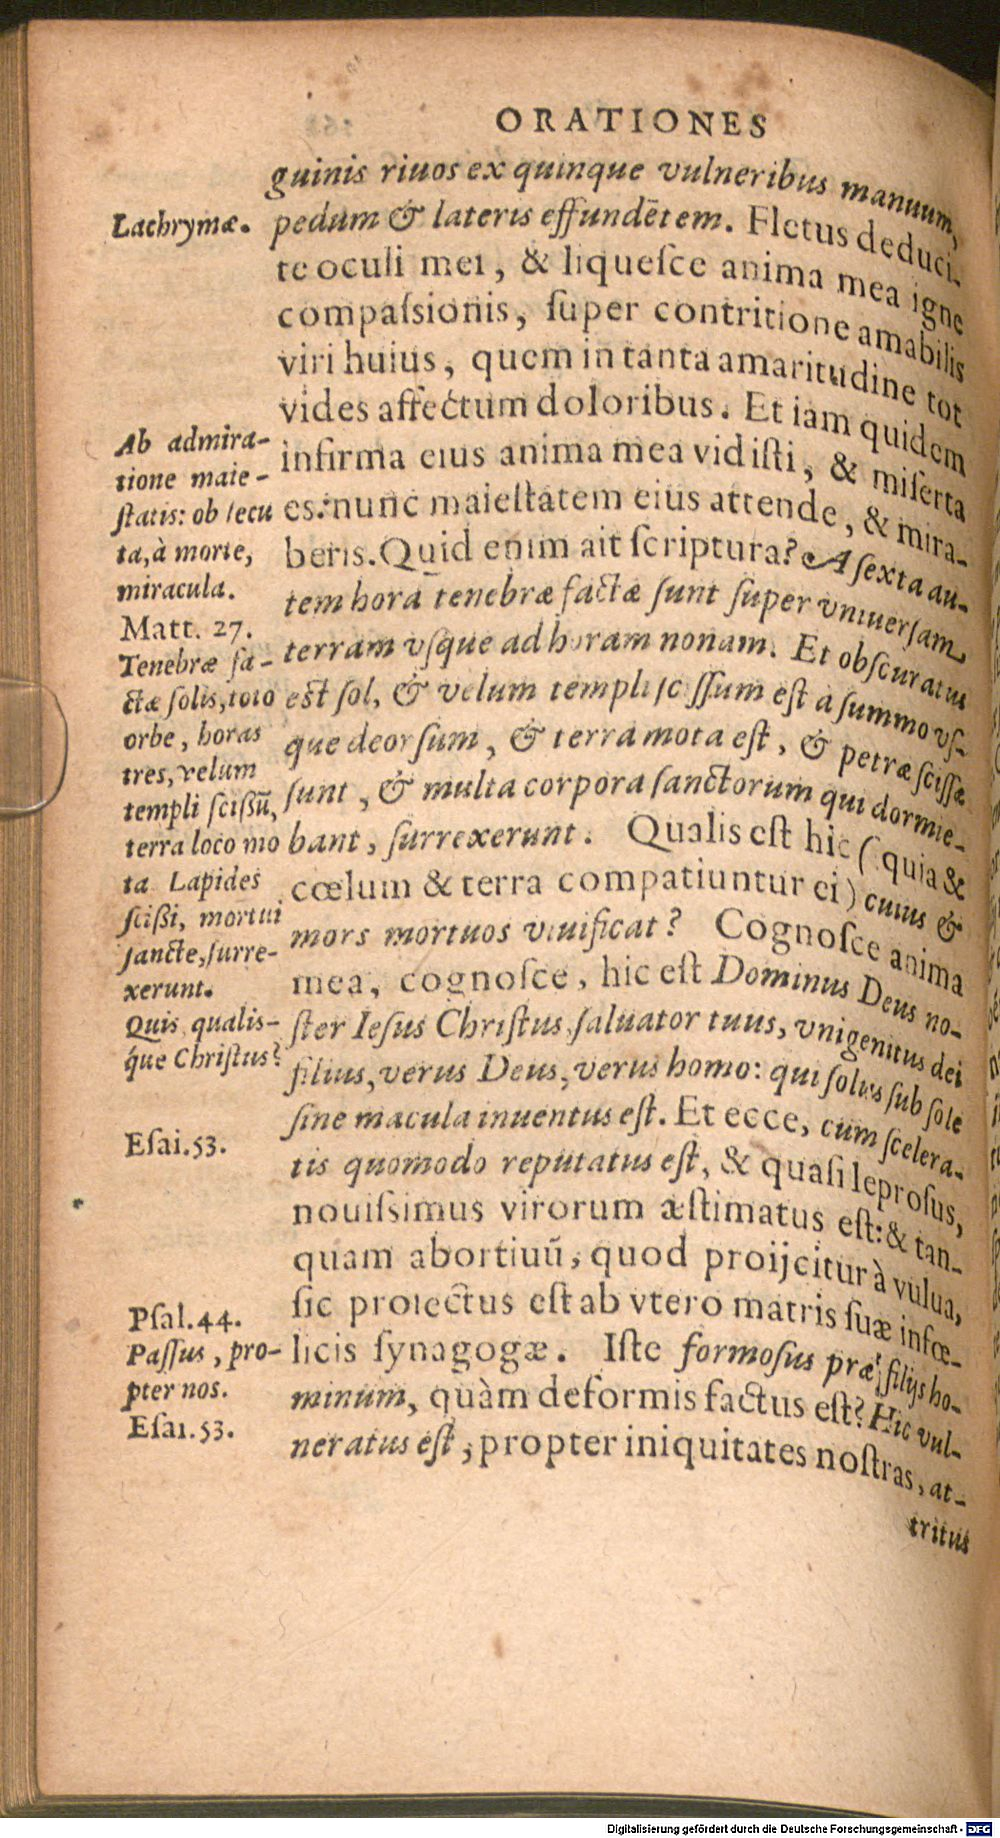 ORATIONES
guinis riuos ex quinque vulneribus manuum,
pedum & lateris effundētem. Fletus deduci-
te oculi mei, & liqueſce anima mea igne
compaſsionis, ſuper contritione amabilis
viri huius, quem in tanta amaritudine tot
vides affectum doloribus. Et iam quidem
infirma eius anima mea vidiſti, & miſerta
es: nunc maieſtatem eius attende, & mira-
beris. Quid enim ait ſcriptura? A ſexta au-
tem hora tenebræ factæ ſunt ſuper vniuerſam
terram vſque ad horam nonam. Et obſcuratus
est ſol, & velum templi ſciſſum eſt à ſummo vſ-
que deorſum, & terra mota eſt, & petræ ſciſſæ
ſunt, & multa corpora ſanctorum qui dormie-
bant, ſurrexerunt. Qualis eſt hic (quia &
cœlum & terra compatiuntur ei) cuius &
mors mortuos viuificat? Cognoſce anima
mea, cognoſce, hic eſt Dominus Deus no-
ſter Ieſus Chriſtus ſaluator tuus, vnigenitus dei
filius, verus Deus, verus homo: qui ſolus ſub ſole
ſine macula inuentus eſt. Et ecce, cum ſcelera-
tis quomodo reputatus eſt, & quaſi leproſus,
nouiſsimus virorum æſtimatus eſt: & tan-
quam abortiuũ, quod proijcitur à vulua,
ſic proiectus eſt ab vtero matris ſuæ infœ-
licis ſynagogæ. Iſte formoſus præ filijs ho-
minum, quàm deformis factus eſt? Hic vul-
neratus eſt, propter iniquitates noſtras, at-
tritus
Lachrymæ.
Ab admira-
tione maie-
ſtatis: ob ſecu
ta, à morte,
miracula.
Matt. 27.
Tenebræ fa-
ctæ ſolis, toto
orbe, horas
tres, velum
templi ſciſſũ,
terra loco mo
ta Lapides
ſciſſi, mortui
ſancte, ſurre-
xerunt.
Quis qualis-
q́ue Chriſtus?
Eſai. 53.
Pſal. 44.
Paſſus, pro-
pter nos.
Eſai. 53.
Digitalisierung gefördert durch die Deutsche Forschungsgemeinschaft - DFG